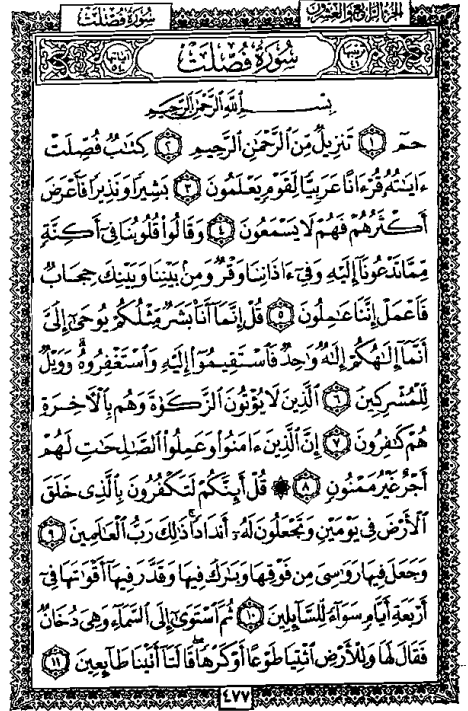 سُورَةُ فُصِّلَتْ
الجزء الرابع والعشرون
سُورَةُ فُصِّلَتْ
بِسْمِ اللَّهِ الرَّحْمَٰنِ الرَّحِيمِ
حمٓ ۝١ تَنزِيلٌ مِّنَ الرَّحْمَٰنِ الرَّحِيمِ ۝٢ كِتَٰبٌ فُصِّلَتْ
ءَايَٰتُهُۥ قُرْءَانًا عَرَبِيًّا لِّقَوْمٍ يَعْلَمُونَ ۝٣ بَشِيرًا وَنَذِيرًا فَأَعْرَضَ
أَكْثَرُهُمْ فَهُمْ لَا يَسْمَعُونَ ۝٤ وَقَالُوا۟ قُلُوبُنَا فِىٓ أَكِنَّةٍ
مِّمَّا تَدْعُونَآ إِلَيْهِ وَفِىٓ ءَاذَانِنَا وَقْرٌ وَمِنۢ بَيْنِنَا وَبَيْنِكَ حِجَابٌ
فَٱعْمَلْ إِنَّنَا عَٰمِلُونَ ۝٥ قُلْ إِنَّمَآ أَنَا۠ بَشَرٌ مِّثْلُكُمْ يُوحَىٰٓ إِلَىَّ
أَنَّمَآ إِلَٰهُكُمْ إِلَٰهٌ وَٰحِدٌ فَٱسْتَقِيمُوٓا۟ إِلَيْهِ وَٱسْتَغْفِرُوهُ ۗ وَوَيْلٌ
لِّلْمُشْرِكِينَ ۝٦ ٱلَّذِينَ لَا يُؤْتُونَ ٱلزَّكَوٰةَ وَهُم بِٱلْءَاخِرَةِ
هُمْ كَٰفِرُونَ ۝٧ إِنَّ ٱلَّذِينَ ءَامَنُوا۟ وَعَمِلُوا۟ ٱلصَّٰلِحَٰتِ لَهُمْ
أَجْرٌ غَيْرُ مَمْنُونٍ ۝٨ ۞ قُلْ أَئِنَّكُمْ لَتَكْفُرُونَ بِٱلَّذِى خَلَقَ
ٱلْأَرْضَ فِى يَوْمَيْنِ وَتَجْعَلُونَ لَهُۥٓ أَندَادًا ۚ ذَٰلِكَ رَبُّ ٱلْعَٰلَمِينَ ۝٩
وَجَعَلَ فِيهَا رَوَٰسِىَ مِن فَوْقِهَا وَبَٰرَكَ فِيهَا وَقَدَّرَ فِيهَآ أَقْوَٰتَهَا فِىٓ
أَرْبَعَةِ أَيَّامٍ سَوَآءً لِّلسَّآئِلِينَ ۝١٠ ثُمَّ ٱسْتَوَىٰٓ إِلَى ٱلسَّمَآءِ وَهِىَ دُخَانٌ
فَقَالَ لَهَا وَلِلْأَرْضِ ٱئْتِيَا طَوْعًا أَوْ كَرْهًا قَالَتَآ أَتَيْنَا طَآئِعِينَ ۝١١
٤٧٧